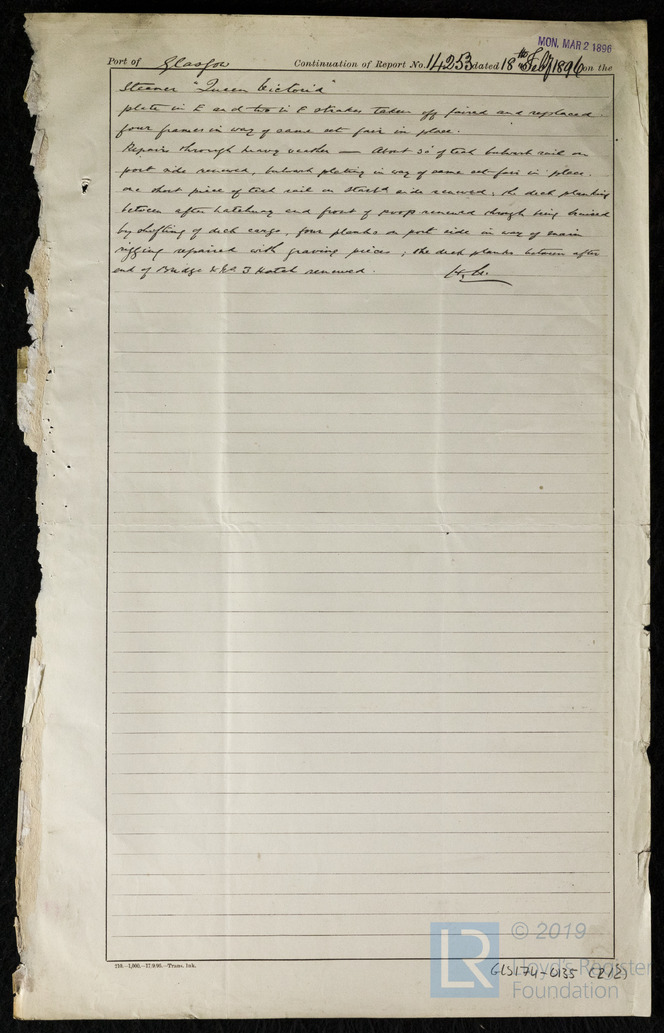 MON. MAR 2 1896
Port of Glasgow Continuation of Report No. 14253 dated 18th Feby 1896 on the
Steamer "Queen Victoria"
plate in E and two in F strakes taken off faired and replaced.
four frames in way of same set fair in place.
Repairs through heavy weather — About 30' of teak bulwark rail on
port side renewed, bulwark plating in way of same set fair in place.
one short piece of teak rail on Starbd side renewed, the deck planking
between after hatchway and front of poop renewed through being bruised
by shifting of deck cargo, four planks on port side in way of main
rigging repaired with graving pieces; the deck planks between after
end of Bridge & No 3 Hatch renewed.
210.—1,000.—17.9.95.—Trans. Ink.
© 2019
LR Lloyd's Register
Foundation
GLS174-0135 (2/2)